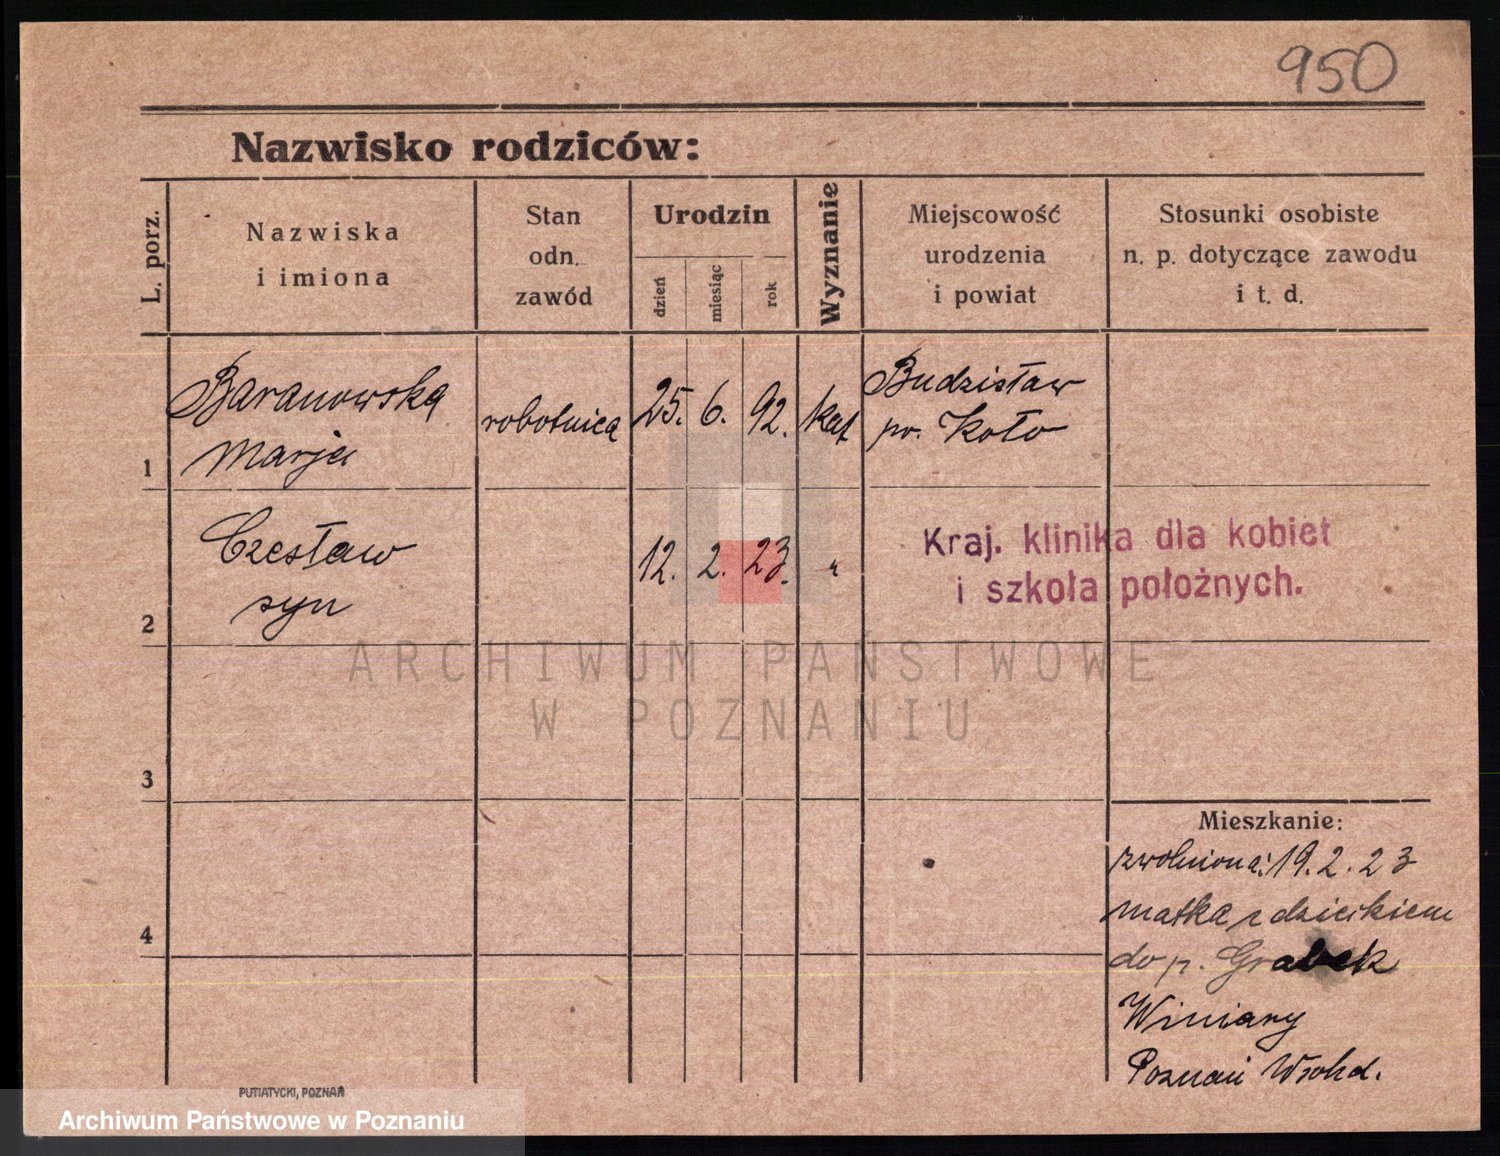 950
Nazwisko rodziców:
L. porz.
Nazwiska
i imiona
Stan
odn.
zawód
Urodzin
dzień
miesiąc
rok
Wyznanie
Miejscowość
urodzenia
i powiat
Stosunki osobiste
n. p. dotyczące zawodu
i t. d.
1
Baranowska
Marja
robotnica
25. 6. 92.
kat
Budzisław
pow. Koło
2
Czesław
syn
12. 2. 23.
"
Kraj. klinika dla kobiet
i szkoła położnych.
ARCHIWUM PAŃSTWOWE
W POZNANIU
3
4
Mieszkanie:
zwolniona: 19.2.23
matka z dzieckiem
do p. Grabek
Winiary
Poznań Wschd.
PUTIATYCKI, POZNAŃ
Archiwum Państwowe w Poznaniu